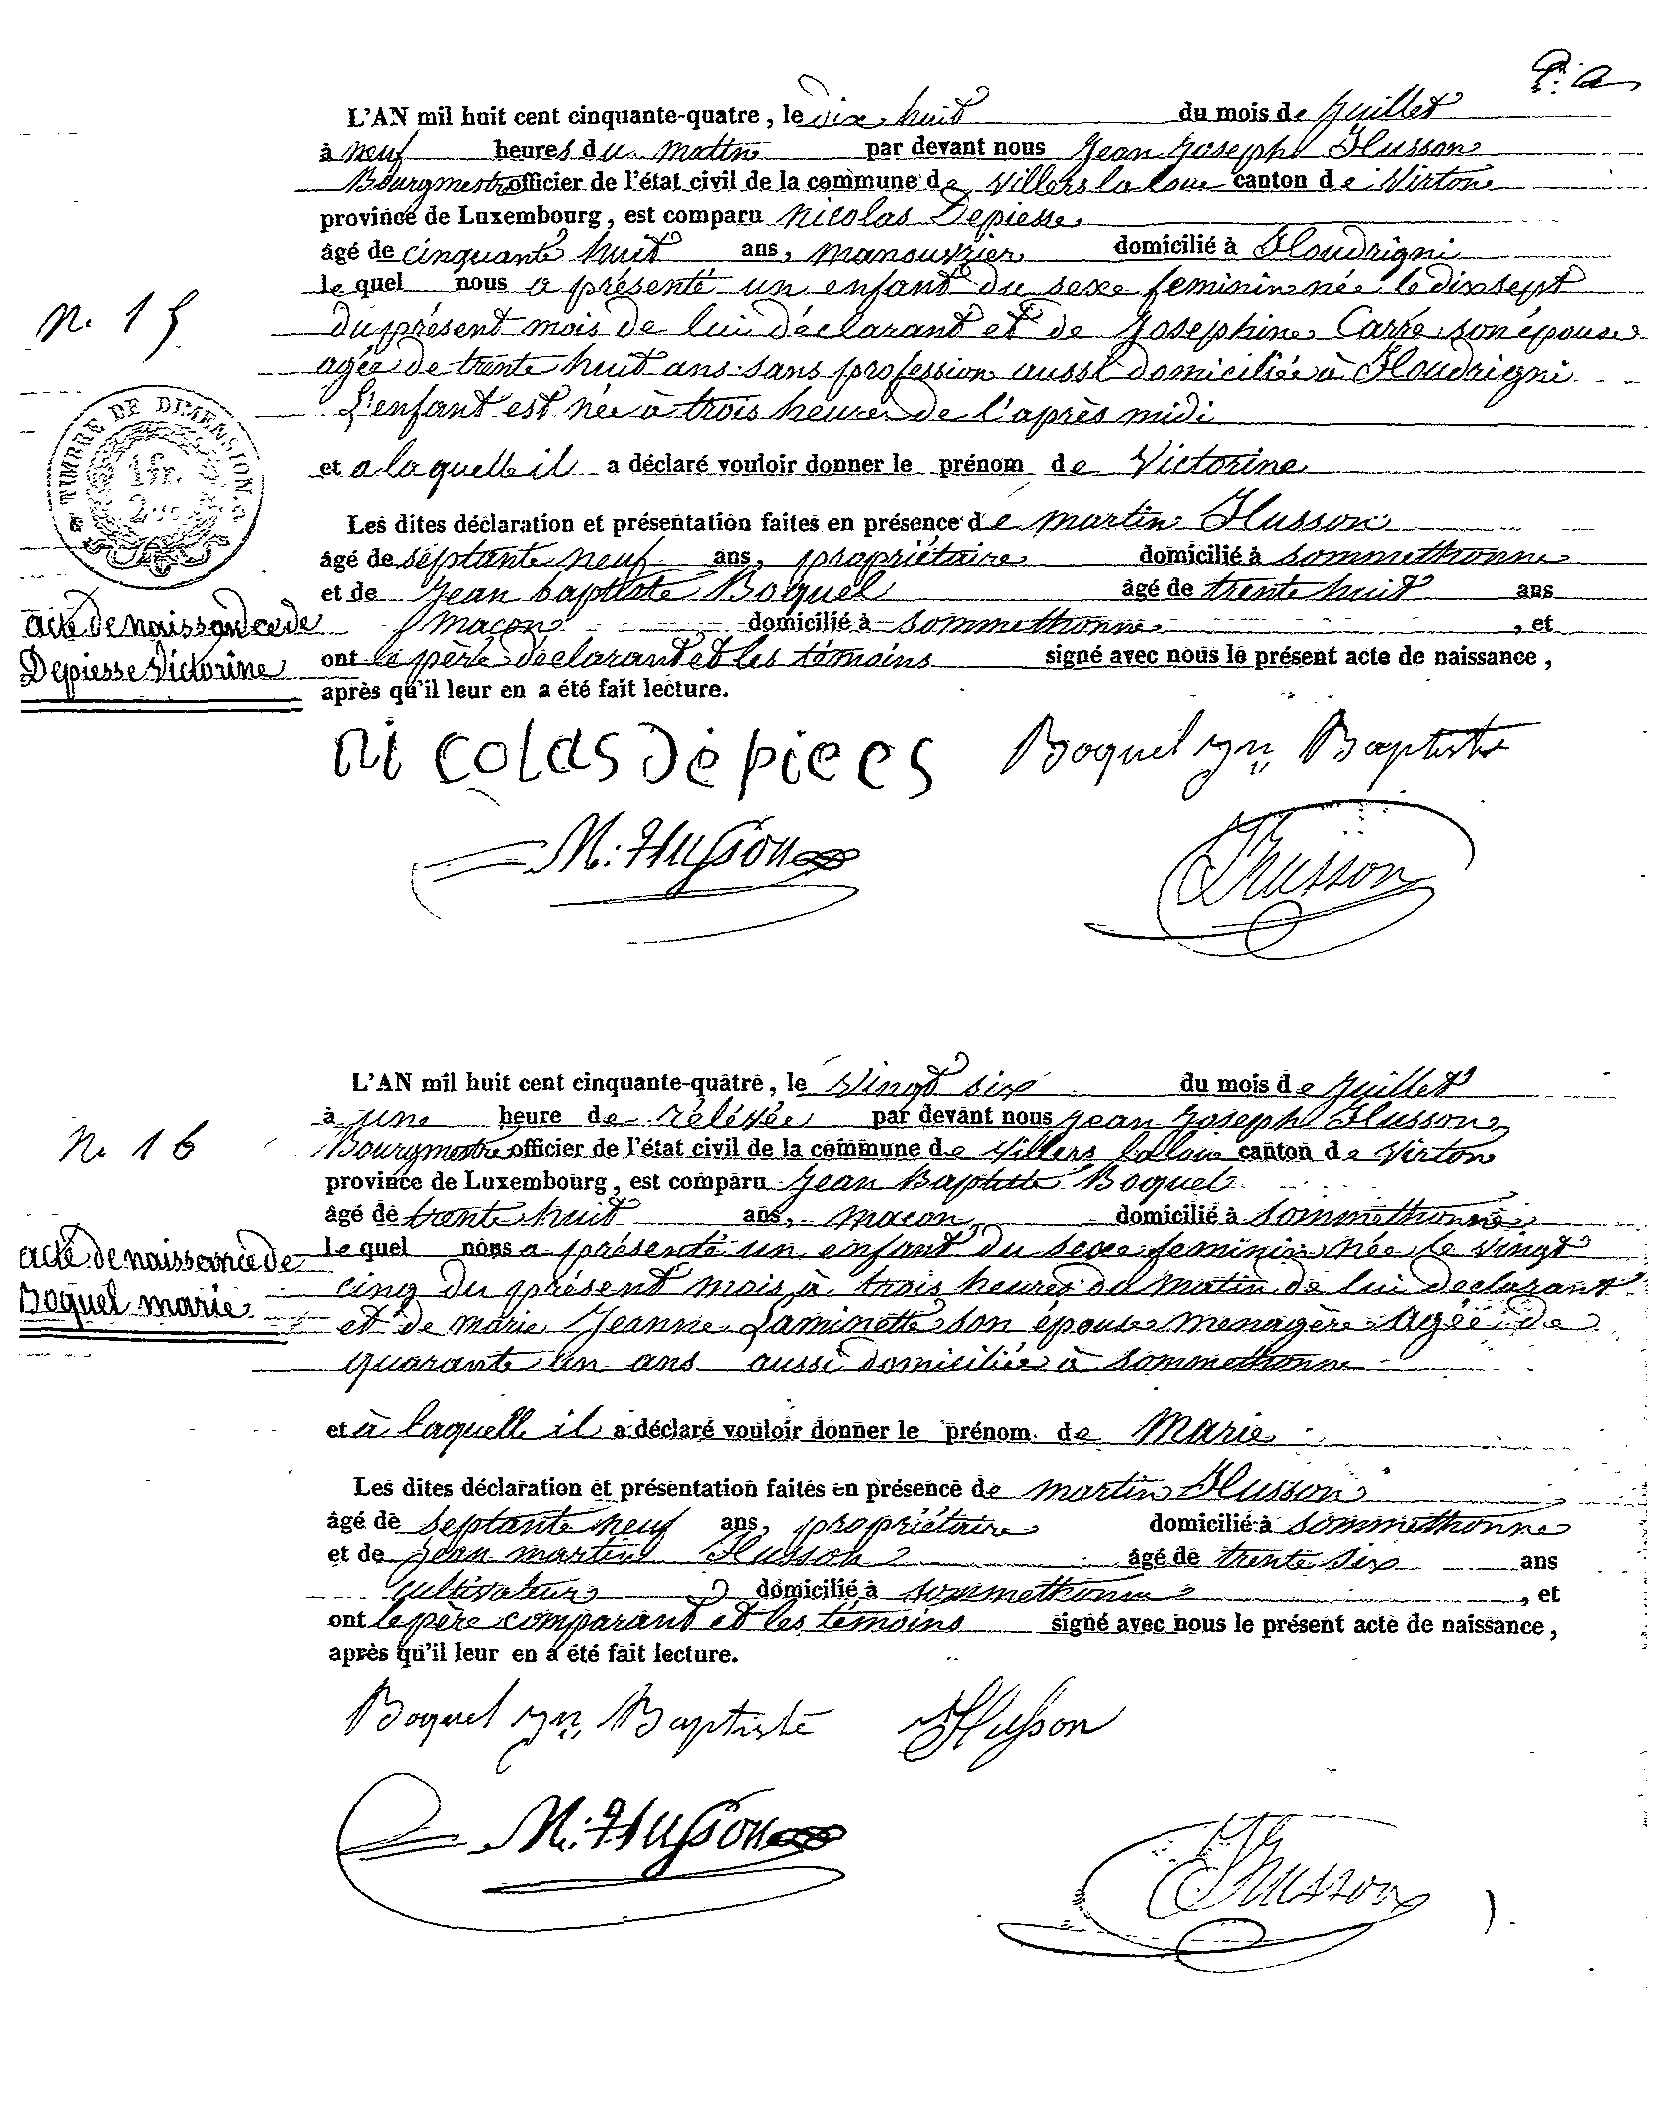 P. a
L'AN mil huit cent cinquante-quatre, le dix huit du mois de juillet
à neuf heures du matin par devant nous Jean Joseph Husson
Bourgmestre officier de l'état civil de la commune de Villers la loue canton de Virton
province de Luxembourg, est comparu Nicolas Depiesse
âgé de cinquante huit ans, manouvrier domicilié à Houdrigni
le quel nous a présenté un enfant du sexe feminin née le dixsept
du présent mois de lui déclarant et de Josephine Carré son épouse
agée de trente huit ans sans profession aussi domiciliée à Houdrigni
L'enfant est née à trois heures de l'après midi
et a laquelle il a déclaré vouloir donner le prénom de Victorine
Les dites déclaration et présentation faites en présence de martin Husson
âgé de septante neuf ans, propriétaire domicilié à sommethonne
et de Jean baptiste Boquel âgé de trente huit ans
maçon domicilié à sommethonne, et
ont le père déclarant et les témoins signé avec nous le présent acte de naissance,
après qu'il leur en a été fait lecture.
N. 15
TIMBRE DE DIMENSION.
1 fr.
acte de naissance de
Depiesse Victorine
nicolas Dépiees
Boquel Jn Baptiste
M. Husson
Husson
L'AN mil huit cent cinquante-quatre, le vingt six du mois de juillet
à une heure de rélévée par devant nous Jean Joseph Husson
Bourgmestre officier de l'état civil de la commune de Villers laloue canton de Virton
province de Luxembourg, est comparu Jean Baptiste Boquel
âgé de trente huit ans, macon domicilié à sommethonne
le quel nous a présenté un enfant du sexe feminin née le vingt
cinq du présent mois à trois heures du matin de lui declarant
et de marie Jeanne Laminette son épouse menagère agée de
quarante un ans aussi domiciliée à sommethonne
et à laquelle il a déclaré vouloir donner le prénom de Marie
Les dites déclaration et présentation faites en présence de martin Husson
âgé de septante neuf ans, propriétaire domicilié à sommethonne
et de Jean martin Husson âgé de trente six ans
cultivateur domicilié à sommethonne, et
ont le père comparant et les témoins signé avec nous le présent acte de naissance,
après qu'il leur en a été fait lecture.
N. 16
acte de naissance de
Boquel marie
Boquel Jn Baptiste
Husson
M. Husson
Husson